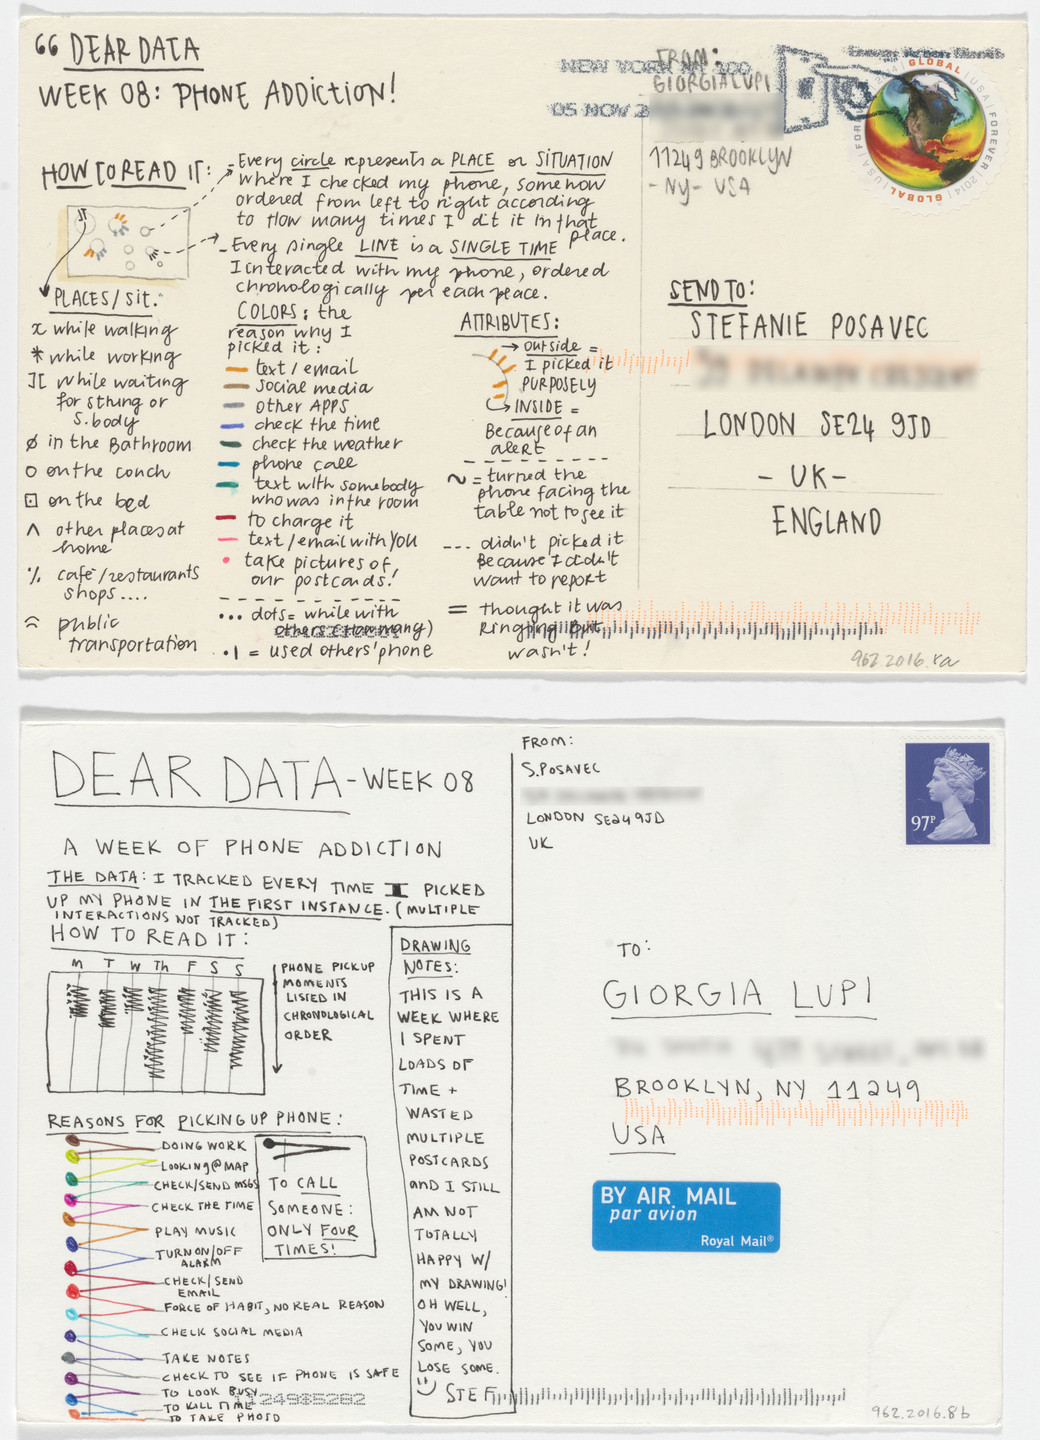 “ DEAR DATA
WEEK 08: PHONE ADDICTION!
HOW TO READ IT:
- Every circle represents a PLACE or SITUATION
where I checked my phone, somehow
ordered from left to right according
to How many times I dit it in that
place.
- Every single LINE is a SINGLE TIME
I interacted with my phone, ordered
chronologically per each peace.
PLACES/sit.
x while walking
* while working
][ while waiting
for sthing or
s.body
ø in the Bathroom
o on the couch
⊡ on the bed
^ other places at
home
% café/restaurants
shops....
public
transportation
COLORS: the
reason why I
picked it:
text/email
social media
other APPS
check the time
check the weather
phone call
text with somebody
who was in the room
to charge it
text/email with YOU
take pictures of
our postcards!
... dots = while with
others (how many)
•| = used others' phone
ATTRIBUTES:
outside =
I picked it
PURPOSELY
INSIDE =
Because of an
alert
~ = turned the
phone facing the
table not to see it
--- didn't picked it
Because I didn't
want to report
= thought it was
Ringing But
wasn't!
NEW YORK NY 100
05 NOV 2
FROM:
GIORGIA LUPI
11249 BROOKLYN
- NY - USA
GLOBAL | USA | FOREVER | 2014 | GLOBAL | USA | FOREVER | 2014
SEND TO:
STEFANIE POSAVEC
LONDON SE24 9JD
- UK -
ENGLAND
962.2016.8a
DEAR DATA - WEEK 08
A WEEK OF PHONE ADDICTION
THE DATA: I TRACKED EVERY TIME I PICKED
UP MY PHONE IN THE FIRST INSTANCE. (MULTIPLE
INTERACTIONS NOT TRACKED)
HOW TO READ IT:
M T W Th F S S
PHONE PICKUP
MOMENTS
LISTED IN
CHRONOLOGICAL
ORDER
REASONS FOR PICKING UP PHONE:
DOING WORK
LOOKING @ MAP
CHECK/SEND MSGS
CHECK THE TIME
PLAY MUSIC
TURN ON/OFF
ALARM
CHECK/SEND
EMAIL
FORCE OF HABIT, NO REAL REASON
CHECK SOCIAL MEDIA
TAKE NOTES
CHECK TO SEE IF PHONE IS SAFE
TO LOOK BUSY
TO KILL TIME
TO TAKE PHOTO
TO CALL
SOMEONE:
ONLY FOUR
TIMES!
DRAWING
NOTES:
THIS IS A
WEEK WHERE
I SPENT
LOADS OF
TIME +
WASTED
MULTIPLE
POSTCARDS
AND I STILL
AM NOT
TOTALLY
HAPPY W/
MY DRAWING!
OH WELL,
YOU WIN
SOME, YOU
LOSE SOME.
STEF
FROM:
S. POSAVEC
LONDON SE24 9JD
UK
97P
TO:
GIORGIA LUPI
BROOKLYN, NY 11249
USA
BY AIR MAIL
par avion
Royal Mail®
962.2016.8b